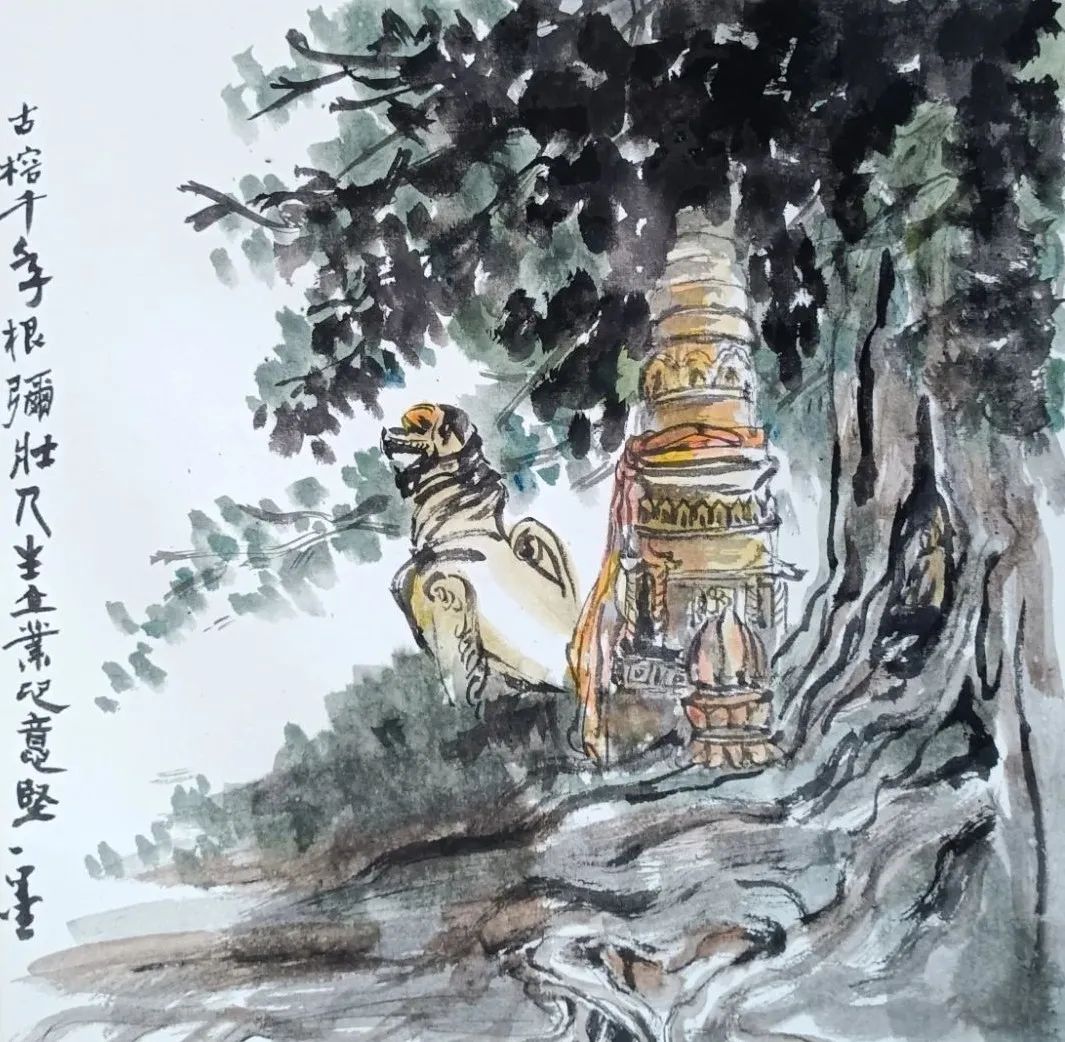 古榕千年根彌壯人生立業意堅一墨